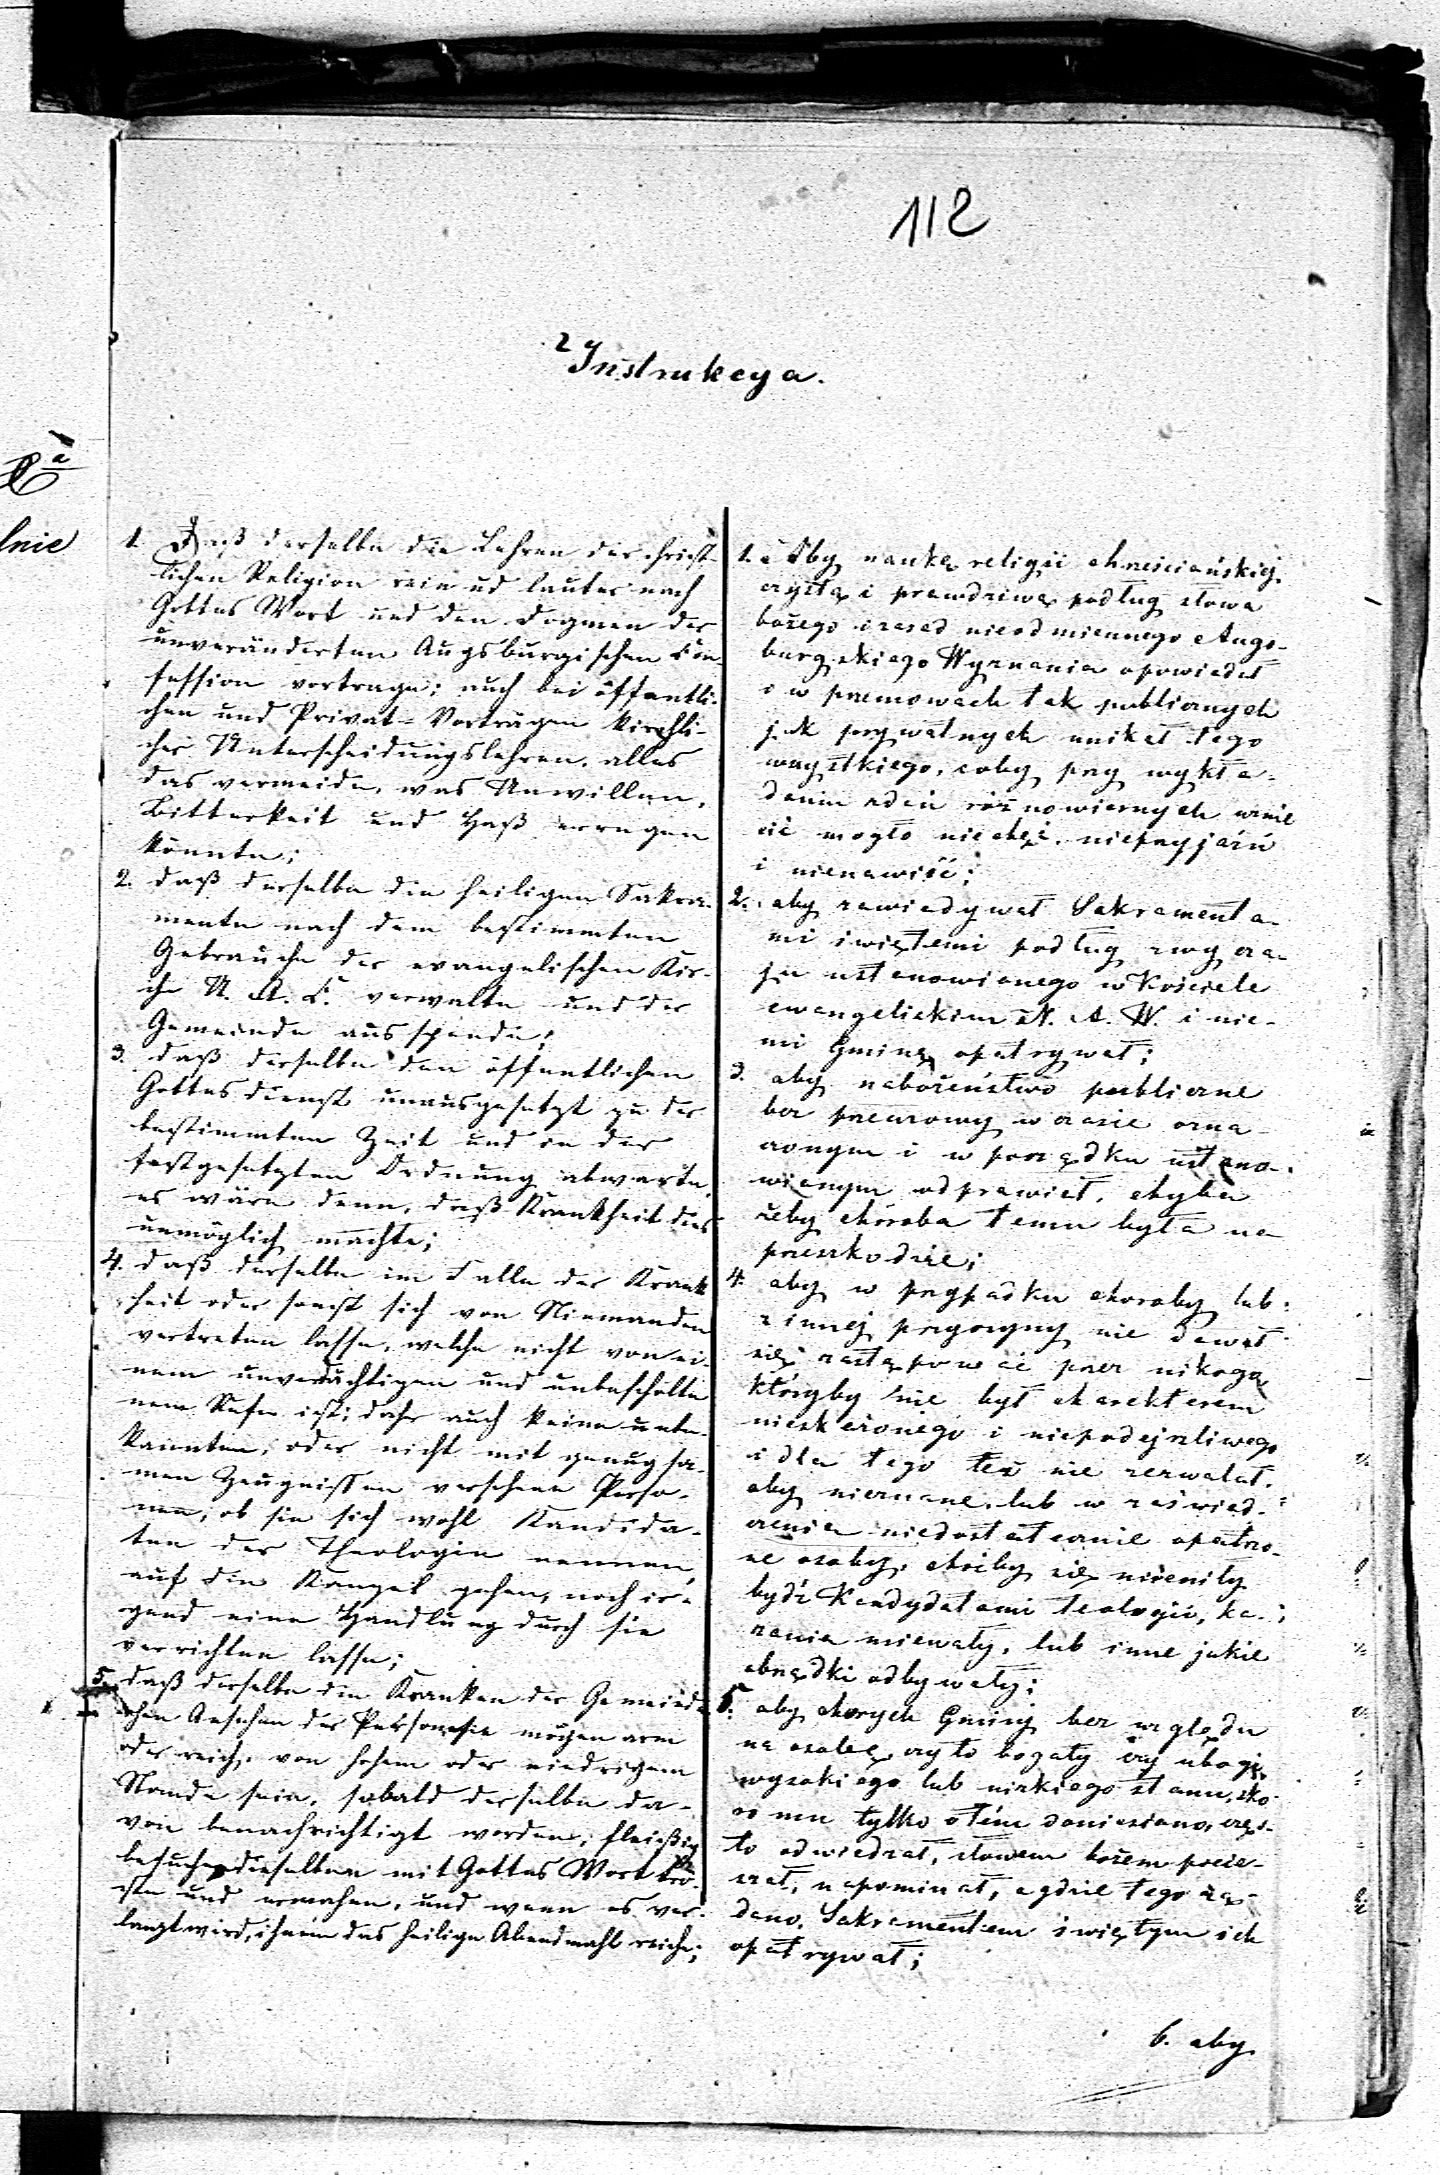 112
Instrukcya.
lnie
1. Daß derselbe die Lehren der christ-
lichen Religion rein ud lauter nach
Gottes Wort und den Dogmen der
unveränderten Augsburgischen Con-
fession vortrage; auch bei öffentli-
chen und Privat-Vorträgen kirchli-
cher Unterscheidungslehren, alles
das vermeide, was Unwillen,
Bitterkeit und Haß erregen
könnte;
2. daß derselbe die heiligen Sakra-
mente nach dem bestimmten
Gebrauche der evangelischen Kir-
che U. A. C. verwalte und der
Gemeinde ausspende;
3. daß derselbe den öffentlichen
Gottesdienst unausgesetzt zu der
bestimmten Zeit und in der
festgesetzten Ordnung abwarte,
es wäre denn, daß Krankheit dies
unmöglich machte;
4. daß derselbe im Falle der Krank
heit oder sonst sich von Niemanden
vertreten lasse, welche nicht von ei-
nem unverdächtigen und unbescholte
nem Rufe ist; daher auch keine unbe-
kannten, oder nicht mit genugsa-
men Zeugnissen versehene Perso-
nen, ob sie sich wohl Kandida-
ten der Theologie nennen,
auf die Kanzel gehen, noch ir-
gend eine Handlung durch sie
verrichten lasse;
5. daß derselbe die Kranken der Gemeinde
ohne Ansehen der Person, sie mögen arm
oder reich, von hohem oder niedrigem
Stande sein, sobald derselbe da-
von benachrichtigt worden, fleißig
besuche, dieselben mit Gottes Wort trö-
ste und ermahne, und wenn es ver-
langt wird, ihnen das heilige Abendmahl reiche;
1. Aby naukę religii chrześciańskiej
czystą i prawdziwą podług słowa
bożego i zasad nieodmiennego Augs-
burgskiego Wyznania opowiadał
i w przemowach tak publicznych
jak prywatnych unikał tego
wszystkiego, coby przy wykła-
daniu zdań różnowiernych wznie
cić mogło niechęć, nieprzyjaźń
i nienawiść;
2. aby zawiadywał Sakramenta-
mi świętemi podług zwycza-
ju ustanowionego w Kościele
ewangelickim N. A. W. i nie-
mi Gminę opatrywał;
3. aby nabożeństwo publiczne
bez przerwy w czasie ozna-
czonym i w porządku ustano-
wionym odprawiał, chyba
żeby choroba temu była na
przeszkodzie;
4. aby w przypadku choroby lub
z innej przyczyny nie dawał
się zastępować przez nikogo,
któryby nie był charakterem
nieskażonego i niepodejrzliwego
i dla tego też nie zezwalał,
aby nieznane, lub w zaświad-
czenia niedostatecznie opatrzo-
ne osoby, choćby się mieniły
bydź Kandydatami teologii, ka-
zania miewały, lub inne jakie
obrządki odbywały;
5. aby chorych Gminy bez względu
na osobę, czy to bogaty czy ubogi,
wysokiego lub nizkiego stanu, sko-
ro mu tylko o tém doniesiono, czę-
to odwiedzał, słowem bożem pocie-
szał, napominał, a gdzie tego żą-
dano, Sakramentem świętym ich
opatrywał;
6. aby